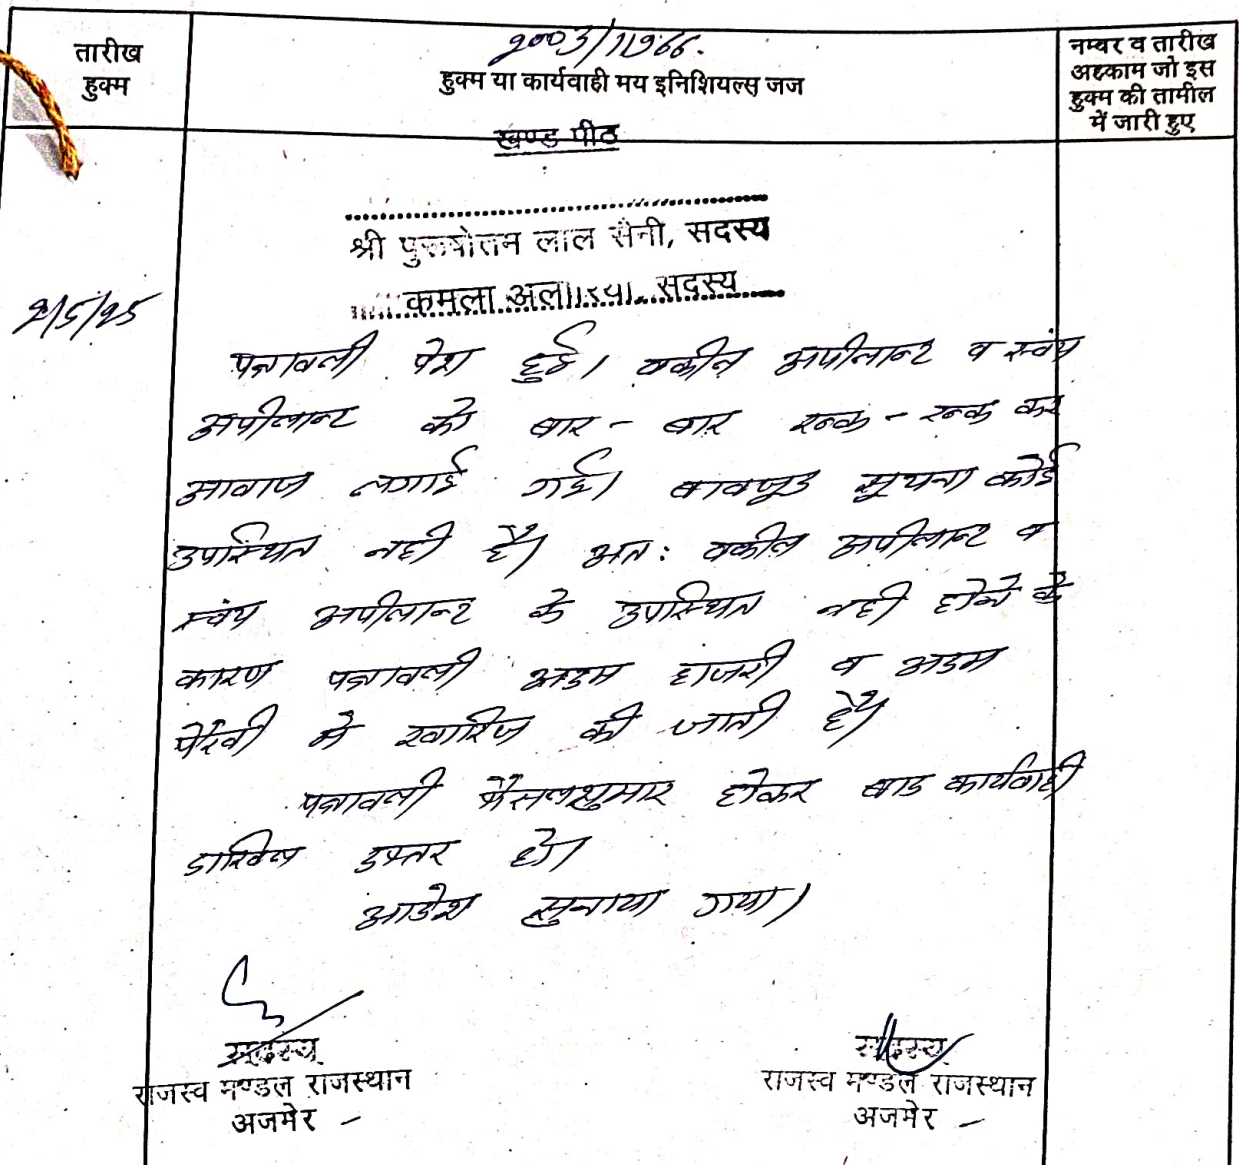 तारीख
हुक्म
2003/11966.
हुक्म या कार्यवाही मय इनिशियल्स जज
नम्बर व तारीख
अहकाम जो इस
हुक्म की तामील
में जारी हुए
खण्ड पीठ
श्री पुरूषोतम लाल सैनी, सदस्य
कमला अलारिया, सदस्य
2/5/25
पत्रावली पेश हुई। वकील अपीलान्ट व स्वंय
अपीलान्ट को बार - बार रूक - रूक कर
आवाज लगाई गई। बावजूद सूचना कोई
उपस्थित नही है। अत: वकील अपीलान्ट व
स्वंय अपीलान्ट के उपस्थित नही होने के
कारण पत्रावली अदम हाजरी व अदम
पैरवी मे खारिज की जाती है।
पत्रावली फैसलशुमार होकर बाद कार्यवाही
दाखिल दफ्तर हो।
आदेश सुनाया गया।
सदस्य
राजस्व मण्डल राजस्थान
अजमेर
सदस्य
राजस्व मण्डल राजस्थान
अजमेर